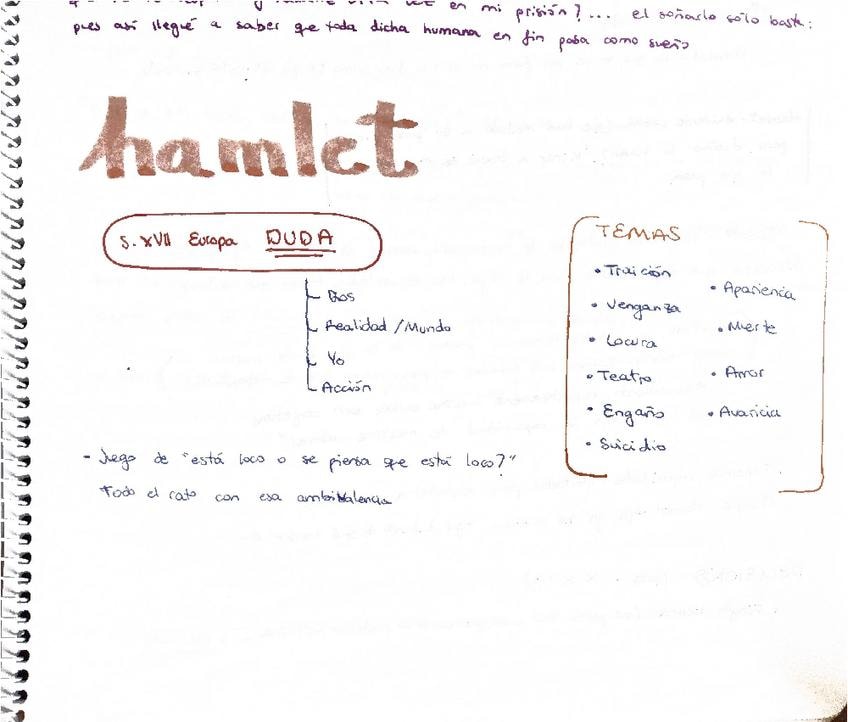 en mi prisión?... el soñarlo sólo basta:
pues así llegué a saber que toda dicha humana en fin pasa como sueño
hamlet
S. XVII Europa DUDA
Dios
Realidad / Mundo
Yo
Acción
TEMAS
• Traición
• Venganza
• Locura
• Teatro
• Engaño
• Suicidio
• Apariencia
• Muerte
• Amor
• Avaricia
- Juego de "está loco o se piensa que está loco?"
Todo el rato con esa ambivalencia